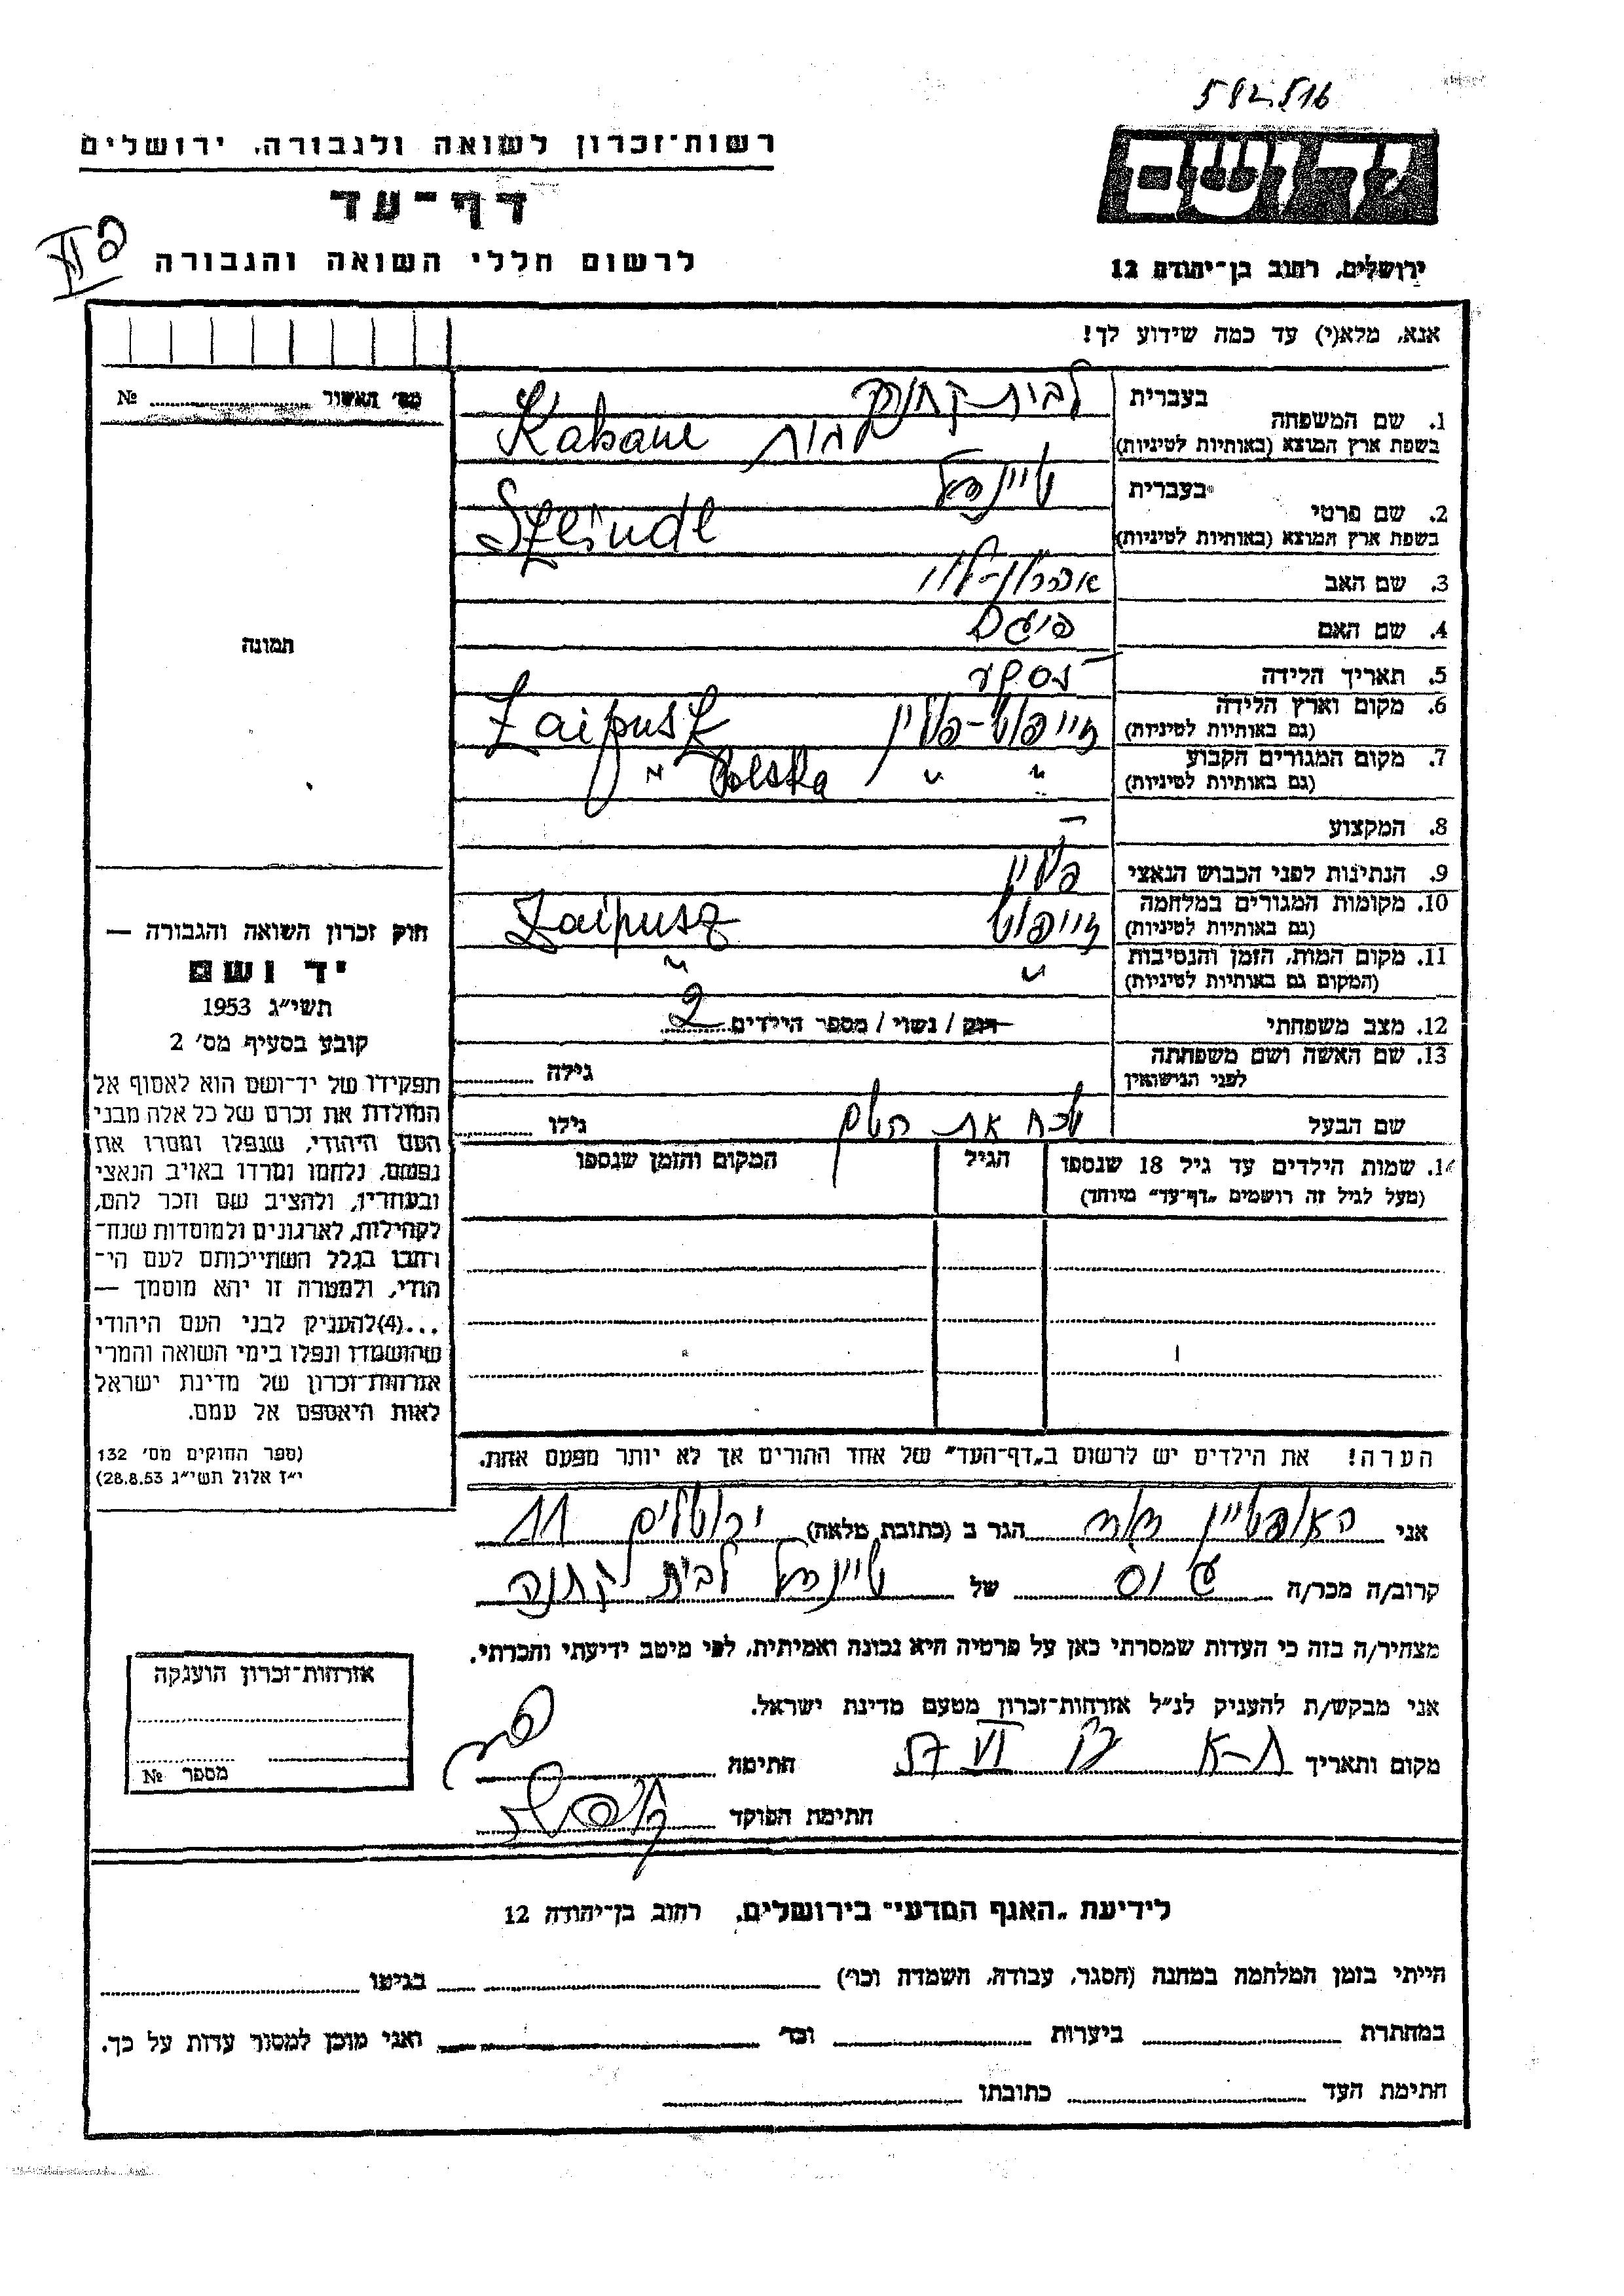 592516
רשות־זכרון לשואה ולגבורה, ירושלים
דף־עד
לרשום חללי השואה והגבורה
יד ושם
ירושלים, רחוב בן־יהודה 12
אנא, מלא(י) עד כמה שידוע לך!
מס׳ האשור № 
1. שם המשפחה
בעברית לבית קהנה
בשפת ארץ המוצא (באותיות לטיניות) Kahane
2. שם פרטי
בעברית שיינדל
בשפת ארץ המוצא (באותיות לטיניות) Szeindl
3. שם האב
4. שם האם
5. תאריך הלידה
6. מקום וארץ הלידה
(גם באותיות לטיניות) זייפוש־פולין Zaipusz
7. מקום המגורים הקבוע
(גם באותיות לטיניות) " " Polska "
8. המקצוע –
9. הנתינות לפני הכבוש הנאצי פולין
10. מקומות המגורים במלחמה
(גם באותיות לטיניות) זייפוש Zaipusz
11. מקום המות, הזמן והנסיבות
(המקום גם באותיות לטיניות) " "
12. מצב משפחתי רווק / נשוי / מספר הילדים 2
13. שם האשה ושם משפחתה
לפני הנישואין
גילה
שם הבעל שכח את השם גילו
14. שמות הילדים עד גיל 18 שנספו
(מעל לגיל זה רושמים „דף־עד״ מיוחד)
הגיל
המקום והזמן שנספו
תמונה
חוק זכרון השואה והגבורה —
יד ושם
תשי״ג 1953
קובע בסעיף מס׳ 2
תפקידו של יד־ושם הוא לאסוף אל
המולדת את זכרם של כל אלה מבני
העם היהודי, שנפלו ומסרו את
נפשם, נלחמו ומרדו באויב הנאצי
ובעוזריו, ולהציב שם וזכר להם,
לקהילות, לארגונים ולמוסדות שנח־
רבו בגלל השתייכותם לעם הי־
הודי, ולמטרה זו יהא מוסמך —
...(4)להעניק לבני העם היהודי
שהושמדו ונפלו בימי השואה והמרי
אזרחות־זכרון של מדינת ישראל
לאות היאספם אל עמם.
(ספר החוקים מס׳ 132
י״ז אלול תשי״ג 28.8.53)
הערה! את הילדים יש לרשום ב„דף־העד״ של אחד ההורים אך לא יותר מפעם אחת.
אני הגר ב (כתובת מלאה) ירושלים 11
קרוב/ה מכר/ה של שיינדל לבית קהנה
מצהיר/ה בזה כי העדות שמסרתי כאן על פרטיה היא נכונה ואמיתית, לפי מיטב ידיעתי והכרתי.
אני מבקש/ת להעניק לנ״ל אזרחות־זכרון מטעם מדינת ישראל.
מקום ותאריך ת-א VI 57 חתימה
חתימת הפוקד
אזרחות־זכרון הוענקה
מספר №
לידיעת „האגף המדעי״ בירושלים, רחוב בן־יהודה 12
הייתי בזמן המלחמה במחנה (הסגר, עבודה, השמדה וכו׳) בגיטו
במחתרת ביערות וכו׳ ואני מוכן למסור עדות על כך.
חתימת העד כתובתו